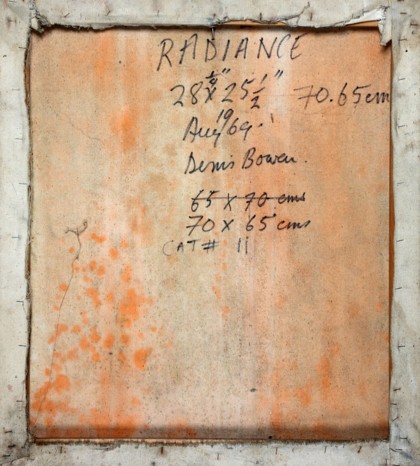 RADIANCE
28 1/2" X 25 1/2" 70.65cm
Aug 1969.
Denis Bowen.
65 X 70 cms
70 X 65 cms
CAT# 11